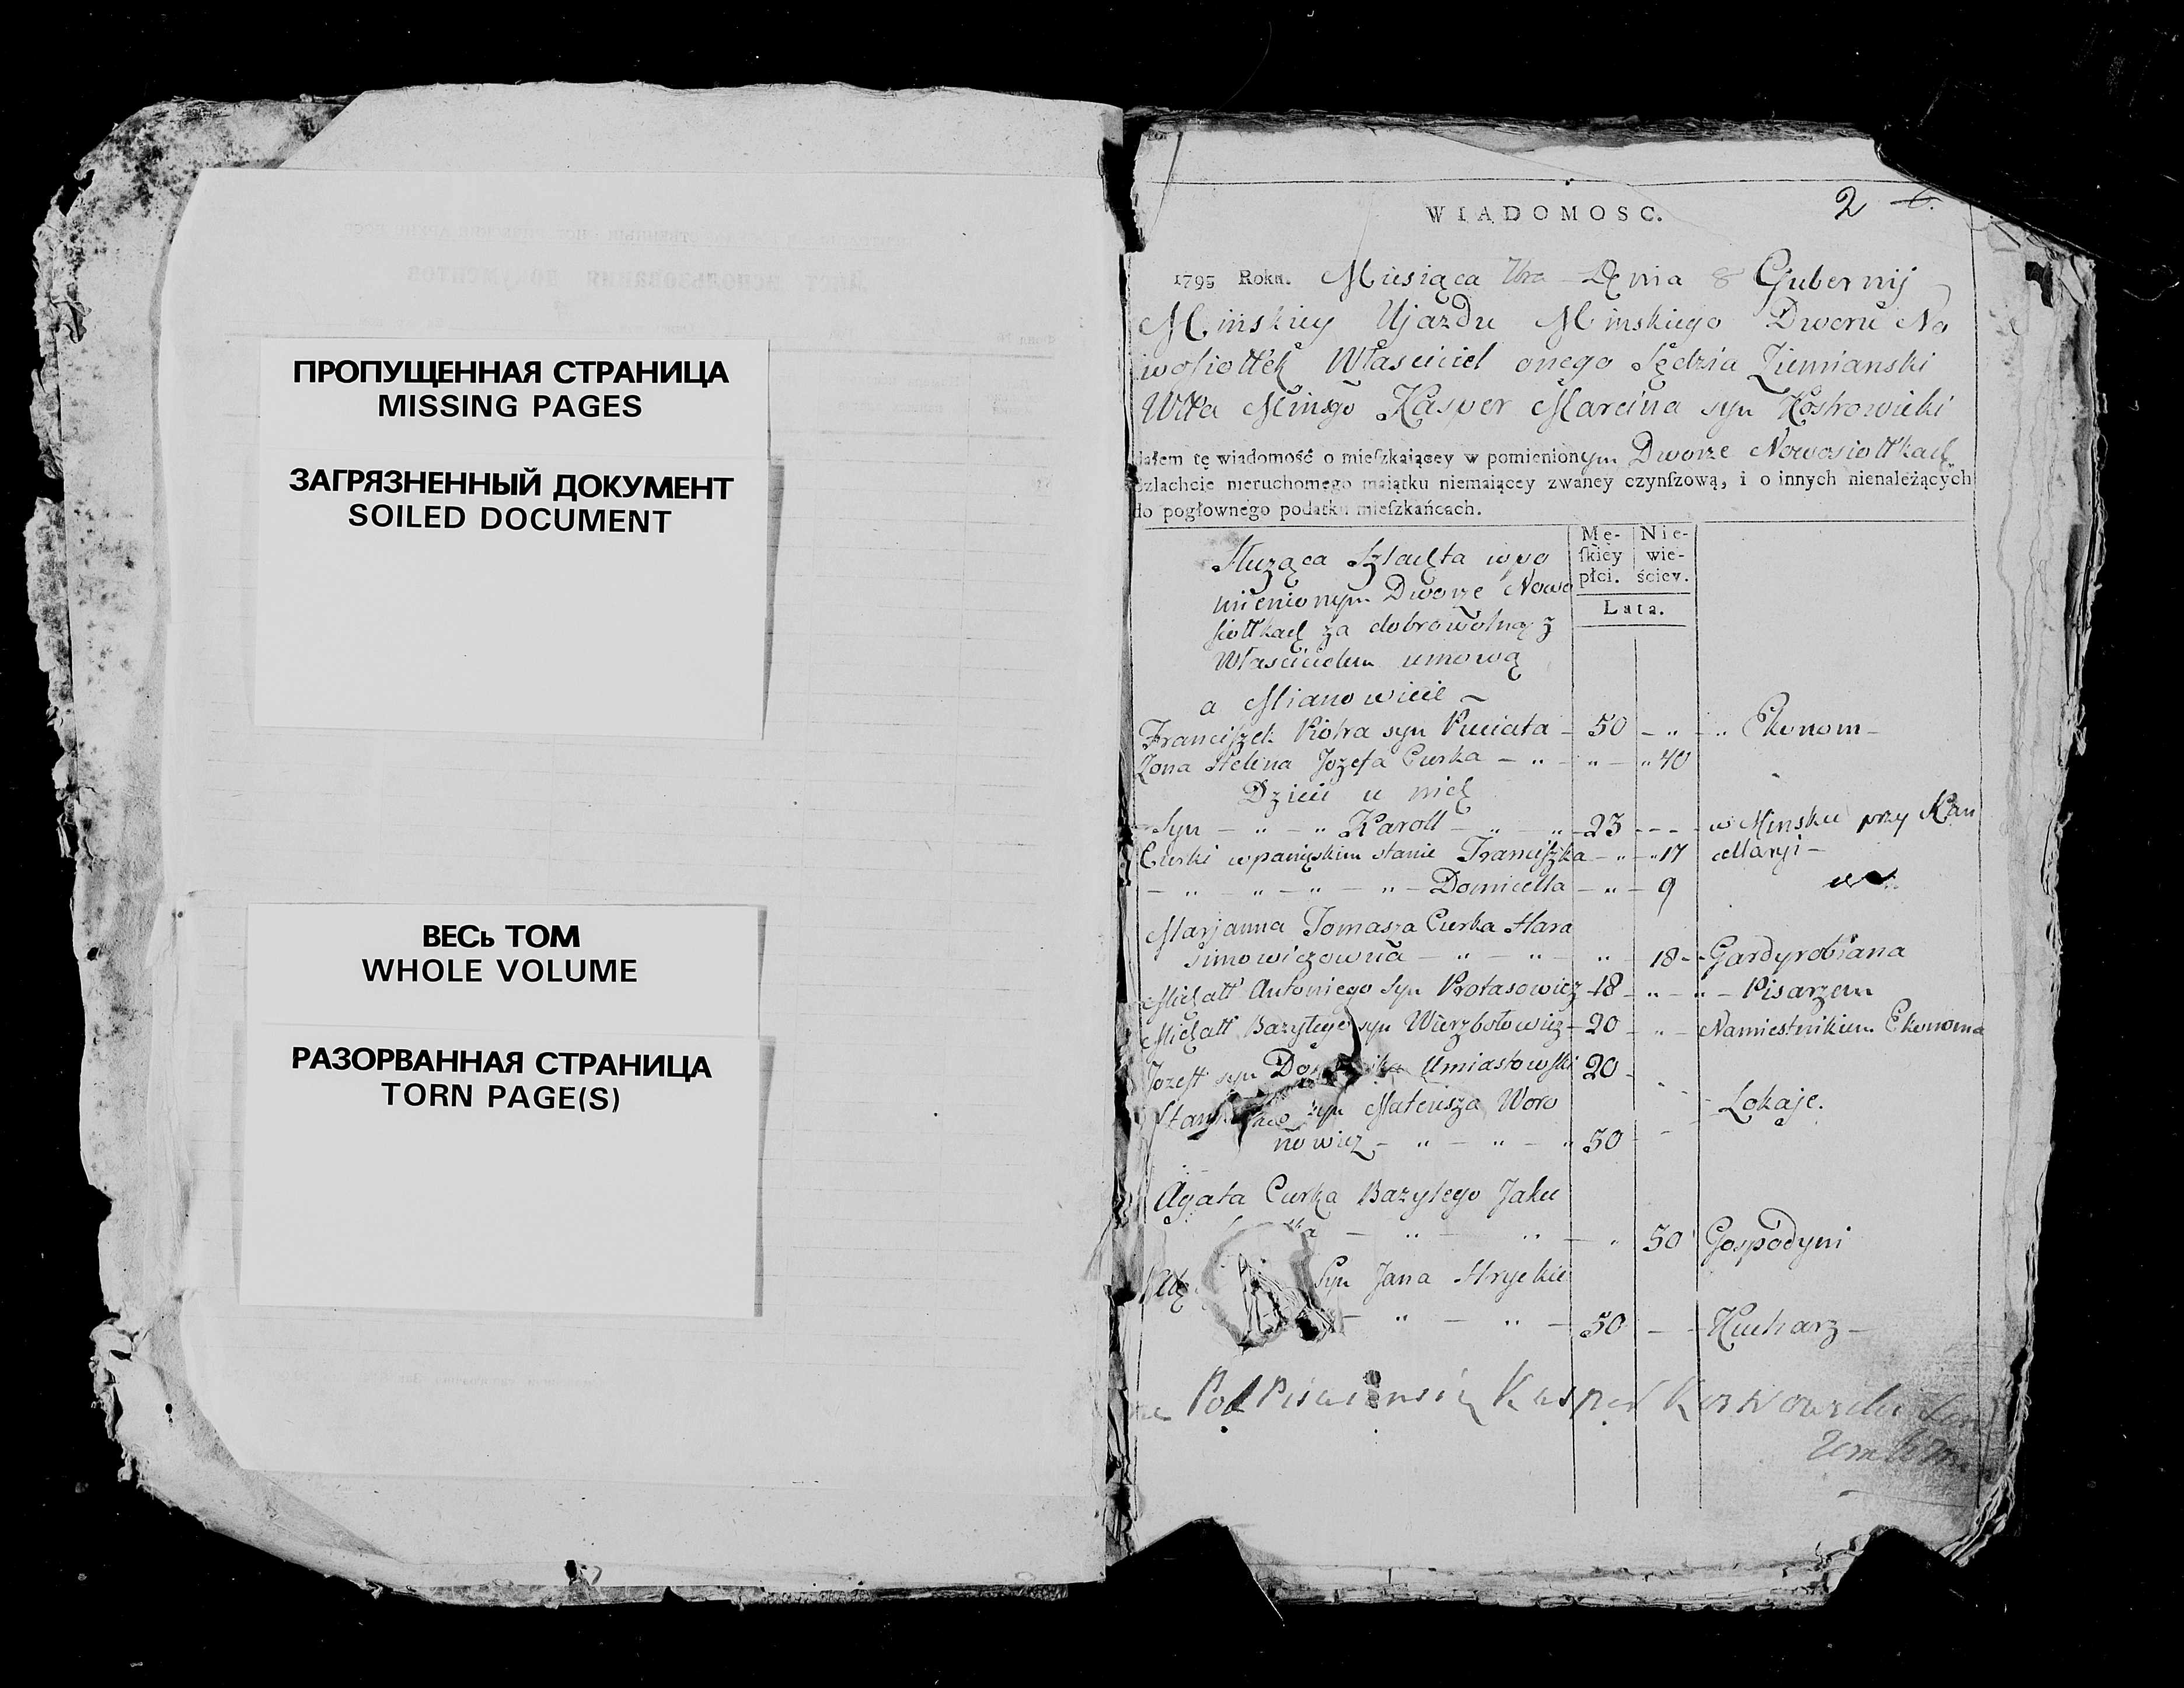 ПРОПУЩЕННАЯ СТРАНИЦА
MISSING PAGES
ЗАГРЯЗНЕННЫЙ ДОКУМЕНТ
SOILED DOCUMENT
ВЕСЬ ТОМ
WHOLE VOLUME
РАЗОРВАННАЯ СТРАНИЦА
TORN PAGE(S)
2
WIADOMOSC.
1795 Roku. Miesiąca Dnia 8 Gubernij
Minskiey Ujazdu Minskiego Dworu No
wosiołek Własciciel onego Sędzia Ziemianski
Kasper Marcina syn Kostrowicki
dałem tę wiadomość o mieſzkaiącey w pomienionym Dworze Nowosiołkach
Szlachcie nieruchomego maiątku niemaiącey zwaney czynſzową, i o innych nienależących
do pogłownego podatku mieſzkańcach.
Mę-
ſkiey
płci.
Nie-
wie-
ściey.
Lata.
Służąca Szlachta w po
mienionym Dworze Nowo
siołkach za dobrowolną z
Właścicielem umową
a Mianowicie
Franciszek Piotra syn Puciata 50 Ekonom
Zona Helena Jozefa Curka 40
Dzieci u nich
Syn Karoll 23 w Minsku przy Kan
Curki w panięskim stanie Franciszka 17 cellaryi
Domicella 9
Marjanna Tomasza Curka Hara
simowiczowna 18 Gardyrobiana
Michałł Antoniego Syn Protasowicz 18 Pisarzem
Michałł Bazylego syn Wierzbołowicz 20 Namiestnikiem Ekonoma
Jozeff syn Umiastowski 20
syn Mateusza Woro Lokaje.
nowicz 50
Agata Curka Bazylego Jaku
50 Gospodyni
Syn Jana Hryckie
50 Kucharz
Podpisuie się Kasper Kostrowicki